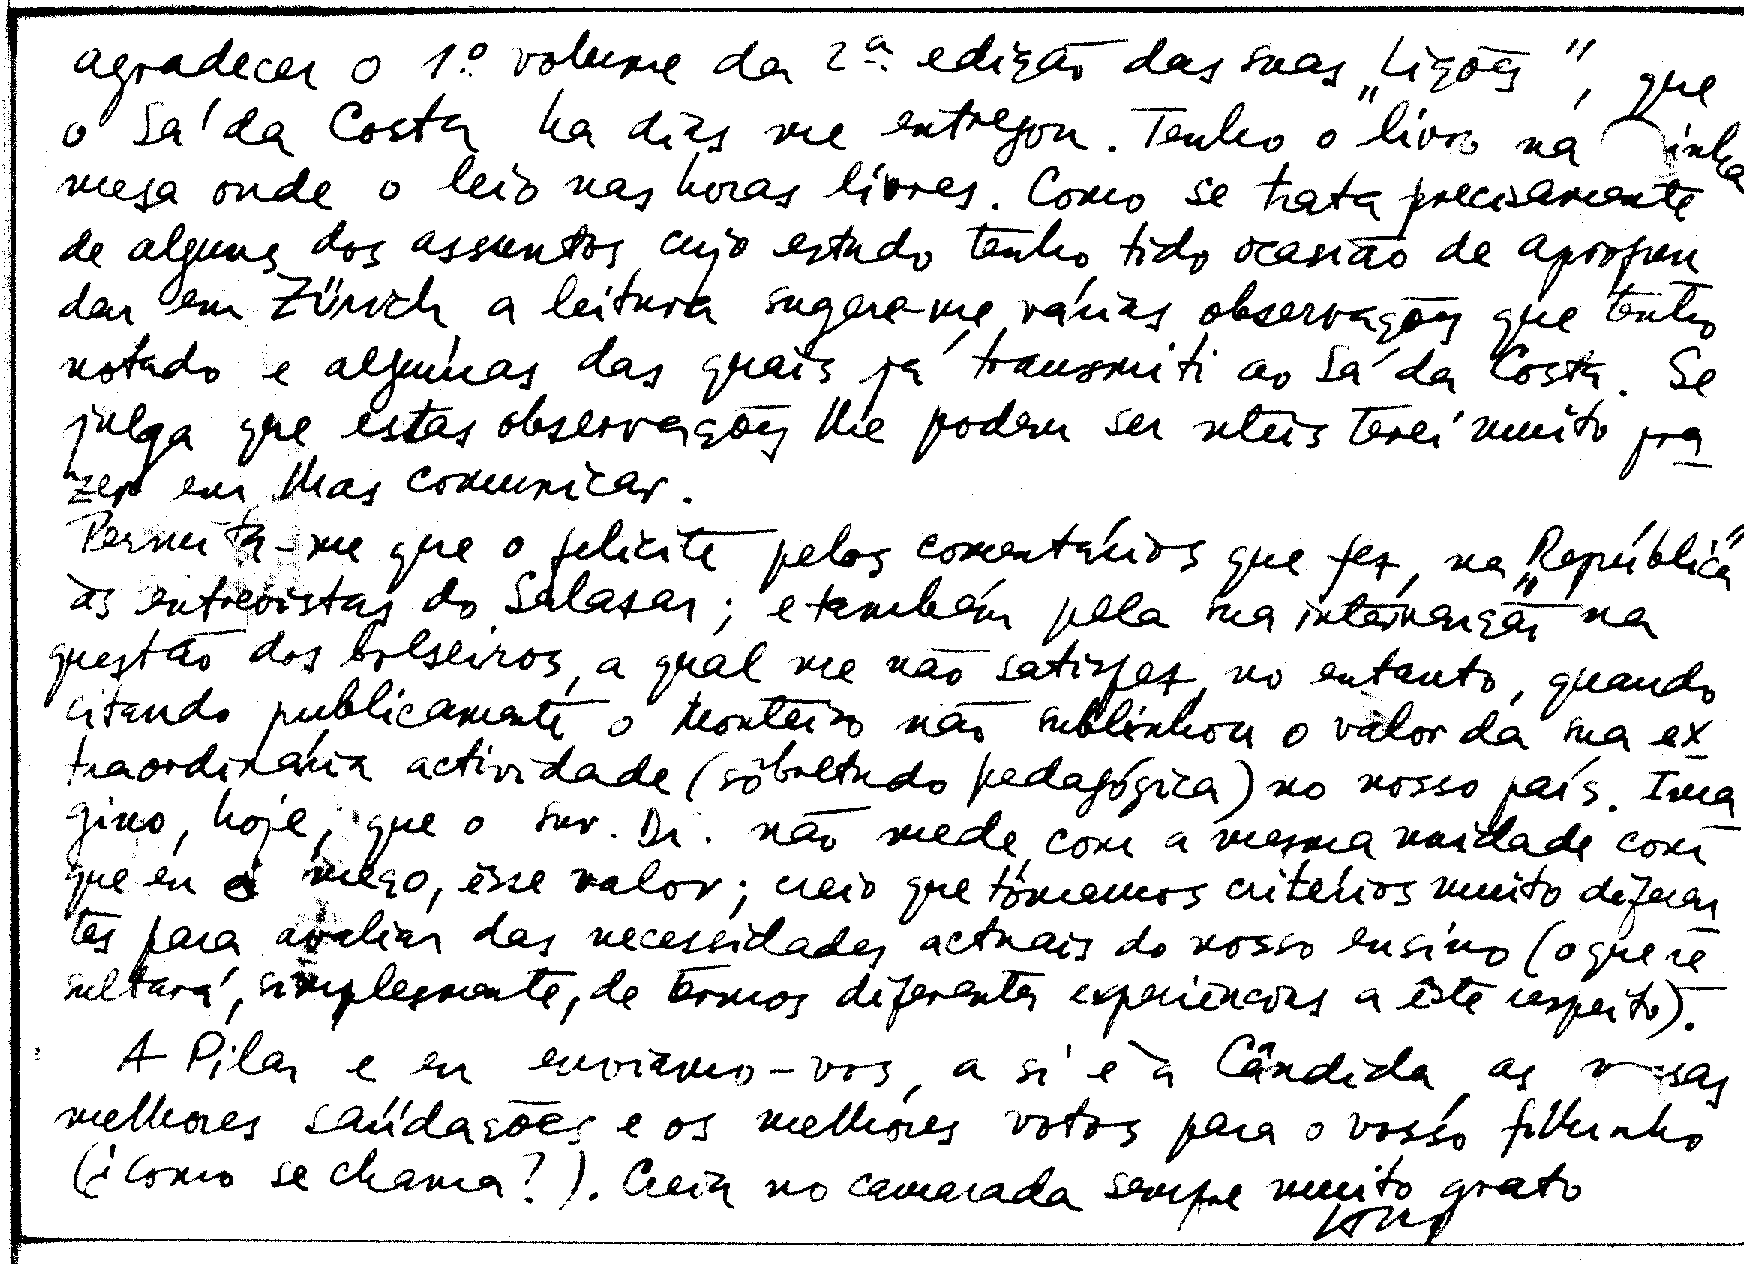 agradecer o 1º volume da 2ª edição das suas „Lições", que
o Sá da Costa ha dias me entregou. Tenho o livro na minha
mesa onde o leio nas horas livres. Como se trata precisamente
de alguns dos assuntos cujo estudo tenho tido ocasião de aprofun
dar em Zürich a leitura sugere-me várias observações que tenho
notado e algumas das quais já transmiti ao Sá da Costa. Se
julga que estas observações lhe podem ser uteis terei muito pra-
zer em lhas comunicar.
Permita-me que o felicite pelos comentários que fez, na „República"
às entrevistas do Salazar; e também pela sua intervenção na
questão dos bolseiros, a qual me não satisfez, no entanto, quando
citando publicamente o Monteiro não sublinhou o valor da sua ex-
traordinária actividade (sôbretudo pedagógica) no nosso país. Ima
gino, hoje, que o snr. Dr. não mede, com a mesma unidade com
que eu o meço, êsse valor; creio que tomamos critérios muito diferen
tes para avaliar das necessidades actuais do nosso ensino (o que re
sultará, simplesmente, de termos diferentes experiências a êste respeito).
A Pilar e eu enviamo-vos, a si e à Cândida as nossas
melhores saüdações e os melhores votos para o vosso filhinho
(¿como se chama?). Creia no camarada sempre muito grato